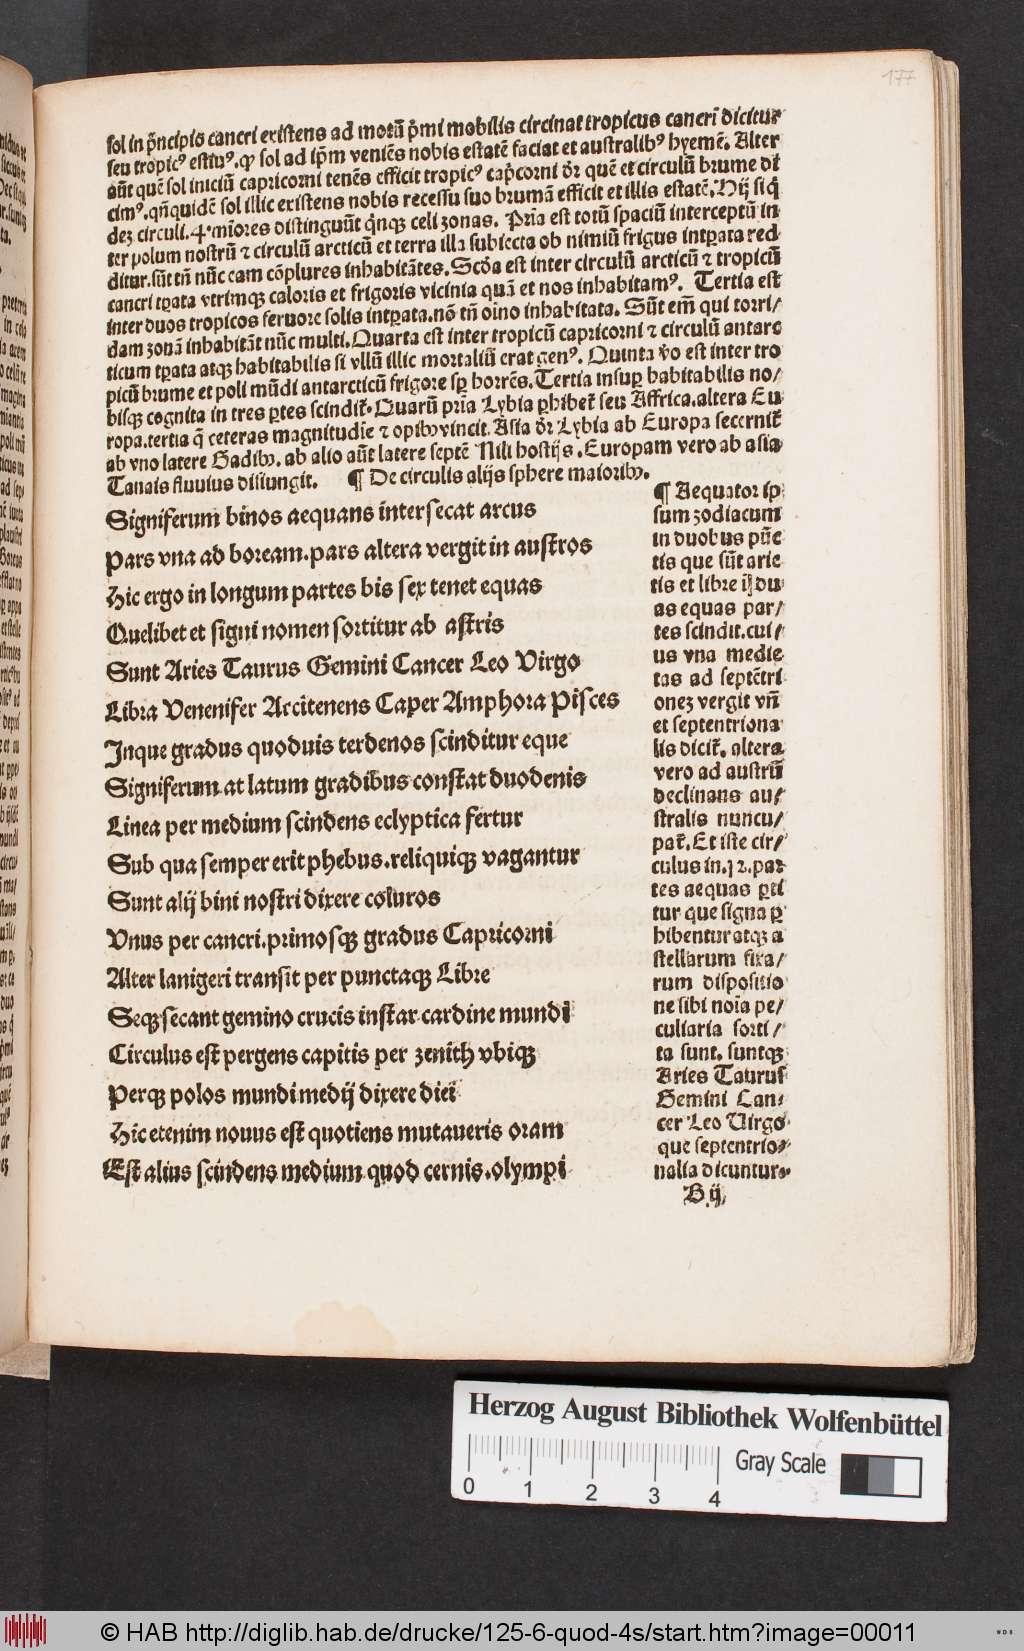 177
sol in p̄ncipio cancri existens ad motū p̄mi mobilis circinat tropicus cancri dicitur
seu tropicꝰ estiuꝰ. ꝙ sol ad ip̄m veniēs nobis estatē faciat et australibꝰ hyemē. Alter
aūt quē sol iniciū capricorni tenēs efficit tropicꝰ cap̄corni dr̄ quē et circulū brume dt̄
cimꝰ. qn̄quidē sol illic existens nobis recessu suo brumā efficit et illis estatē. Hij si q̄
dez circuli .4. mīores distinguūt qn̄qꝫ celi zonas. Prīa est totū spaciū interceptū in
ter polum nostrū ⁊ circulū arcticū et terra illa subiecta ob nimiū frigus intꝑata red
ditur. sūt tn̄ nūc eam cōplures inhabitātes. Scḋa est inter circulū arcticū ⁊ tropicū
cancri tꝑata vtrimqꝫ caloris et frigoris vicinia quā et nos inhabitamꝰ. Tertia est
inter duos tropicos feruore solis intꝑata. nō tn̄ oīno inhabitata. Sūt em̄ qui torri/
dam zonā inhabitāt nūc multi. Quarta est inter tropicū capricorni ⁊ circulū antarc
ticum tꝑata atqꝫ habitabilis si vllū illic mortaliū erat genꝰ. Quinta v̄o est inter tro
picū brume et poli mūdi antarcticū frigore sꝑ horrēs. Tertia insuꝑ habitabilis no/
bisqꝫ cognita in tres ꝑtes scindit̄. Quarū prīa Lybia ꝑhibet̄ seu Affrica. altera Eu
ropa. tertia q̄ ceteras magnitudīe ⁊ opibꝫ vincit. Asia dr̄ Lybia ab Europa secernit̄
ab vno latere Gadibꝫ. ab alio aūt latere septē Nili hostijs. Europam vero ab asia
Tanais fluuius disiungit. ¶ De circulis alijs sphere maioribꝫ.
Signiferum binos aequans intersecat arcus
Pars vna ad boream. pars altera vergit in austros
Hic ergo in longum partes bis sex tenet equas
Quelibet et signi nomen sortitur ab astris
Sunt Aries Taurus Gemini Cancer Leo Virgo
Libra Venenifer Arcitenens Caper Amphora Pisces
Inque gradus quoduis terdenos scinditur eque
Signiferum at latum gradibus constat duodenis
Linea per medium scindens eclyptica fertur
Sub qua semper erit phebus. reliquiqꝫ vagantur
Sunt alij bini nostri dixere coluros
Vnus per cancri. primosqꝫ gradus Capricorni
Alter lanigeri transit per punctaqꝫ Libre
Seqꝫ secant gemino crucis instar cardine mundi
Circulus est pergens capitis per zenith vbiqꝫ
Perqꝫ polos mundi medij dixere diei
Hic etenim nouus est quotiens mutaueris oram
Est alius scindens medium quod cernis. olympi
¶ Aequator ip
sum zodiacum
in duobus pūc
tis que sūt arie
tis et libre ī duas
as equas par/
tes scindit. cui/
us vna medie
tas ad septētri
onez vergit vn̄
et septentriona
lis dicit̄. altera
vero ad austrū
declinans au/
stralis nuncu/
pat̄. Et iste cir/
culus in .12. par
tes aequas ꝑti
tur que signa ꝑ
hibentur atqꝫ a
stellarum fixa/
rum dispositio
ne sibi noīa pe/
culiaria sorti/
ta sunt. suntqꝫ
Aries Taurus
Gemini Can/
cer Leo Virgo
que septentrio/
nalia dicuntur.
B ij
Herzog August Bibliothek Wolfenbüttel
Gray Scale
0 1 2 3 4
© HAB http://diglib.hab.de/drucke/125-6-quod-4s/start.htm?image=00011